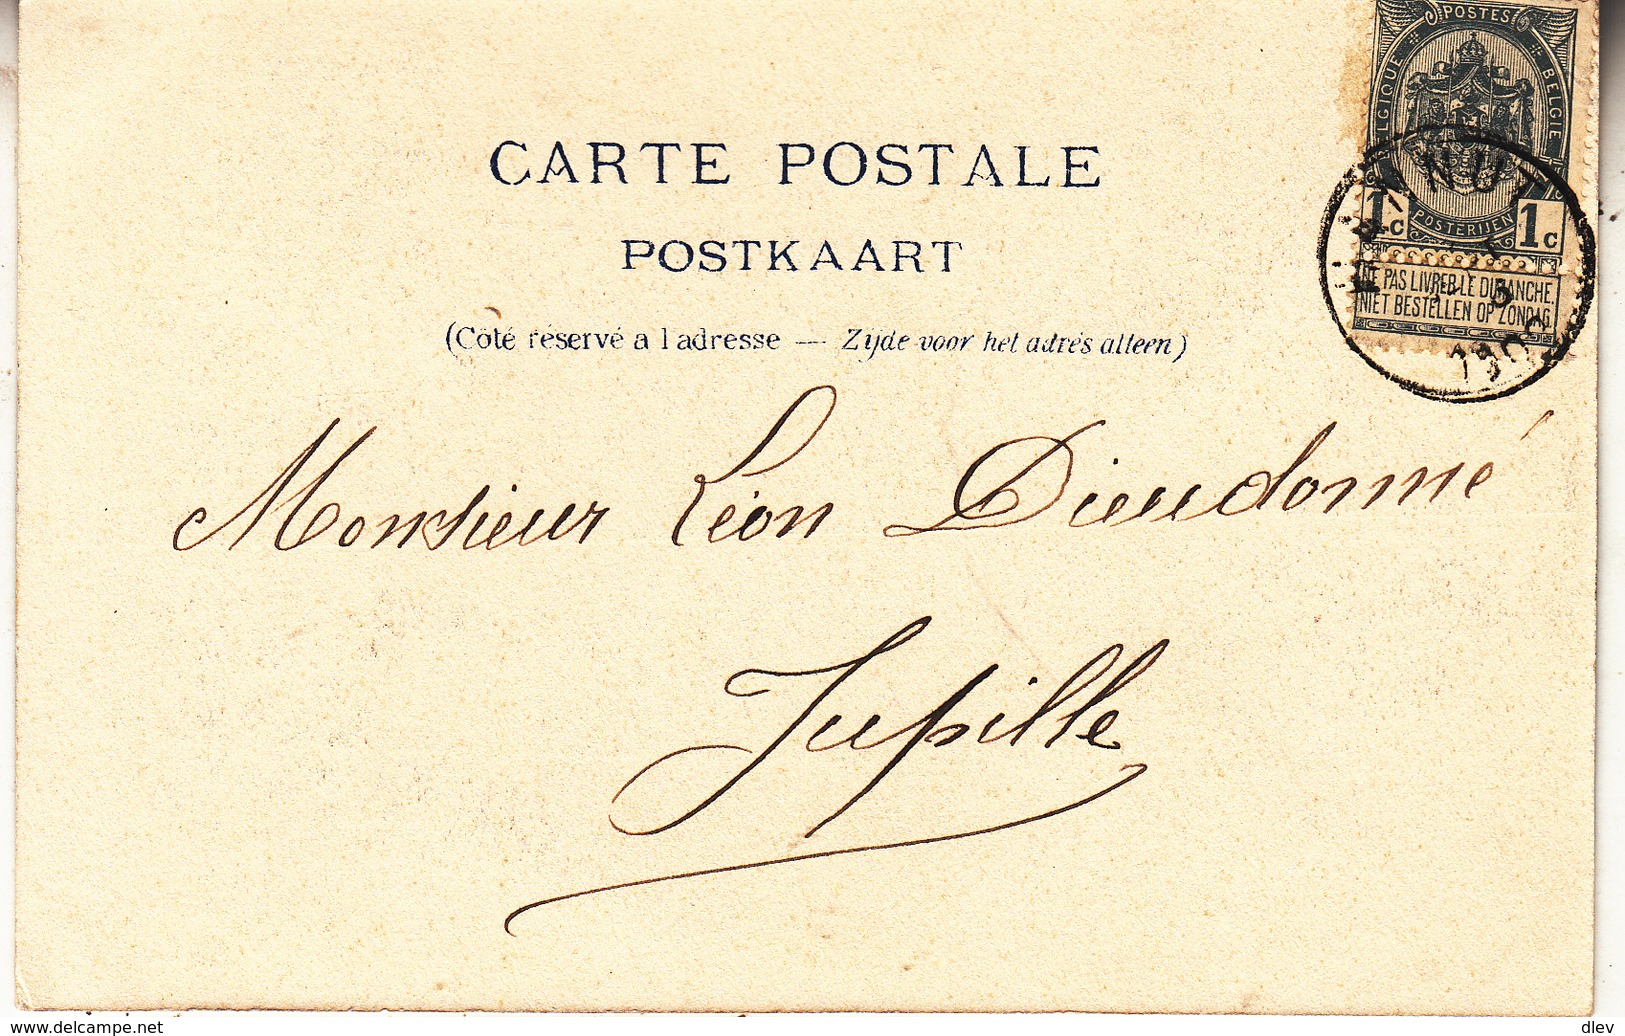 POSTES
BELGIQUE BELGIE
POSTERIJEN
1c 1c
NE PAS LIVRER LE DIMANCHE.
NIET BESTELLEN OP ZONDAG.
CARTE POSTALE
POSTKAART
(Côté réservé a l'adresse — Zijde voor het adrès alleen)
Monsieur Léon Dieudonné
Jupille
www.delcampe.net
dlev